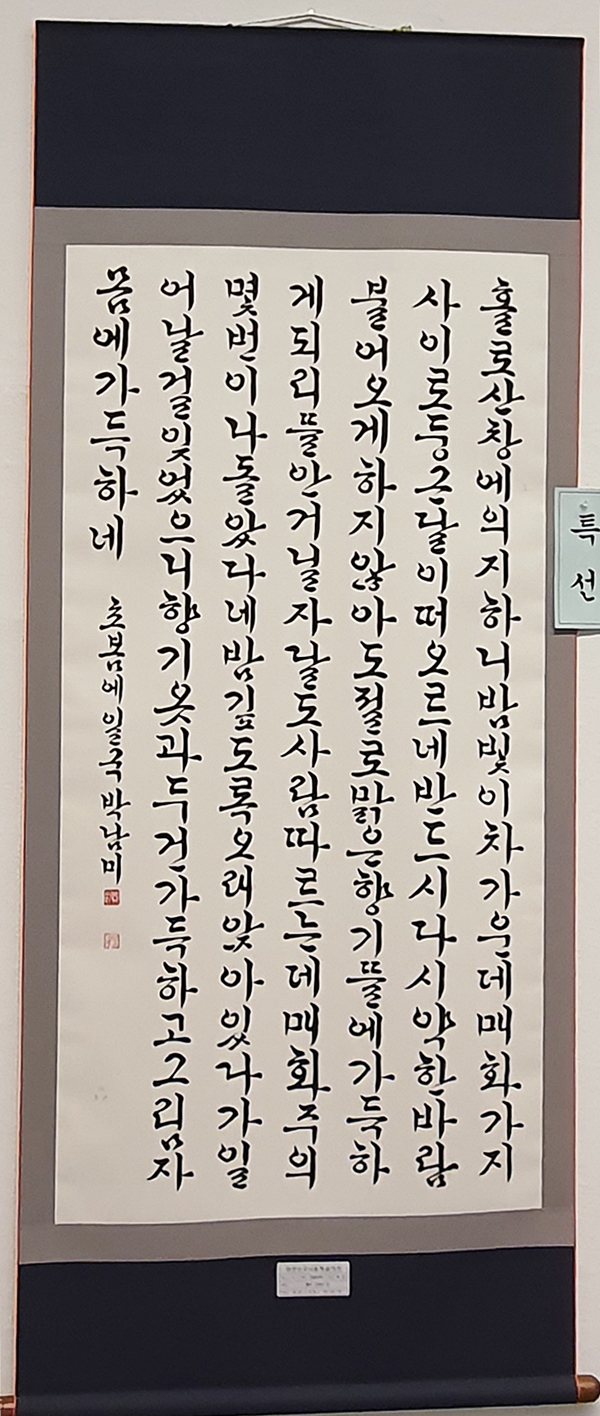 홀로산창에의지하니밤빛이차가운데매화가지
사이로둥근달이떠오르네반드시다시약한바람
불어오게하지않아도절로맑은향기뜰에가득하
게되리뜰안거닐자달도사람따르는데매화주의
몇번이나돌았다네밤깊도록오래앉아있나가일
어날걸잊었으니향기옷과두건가득하고그림자
몸에가득하네
초봄에일국박남미
특선